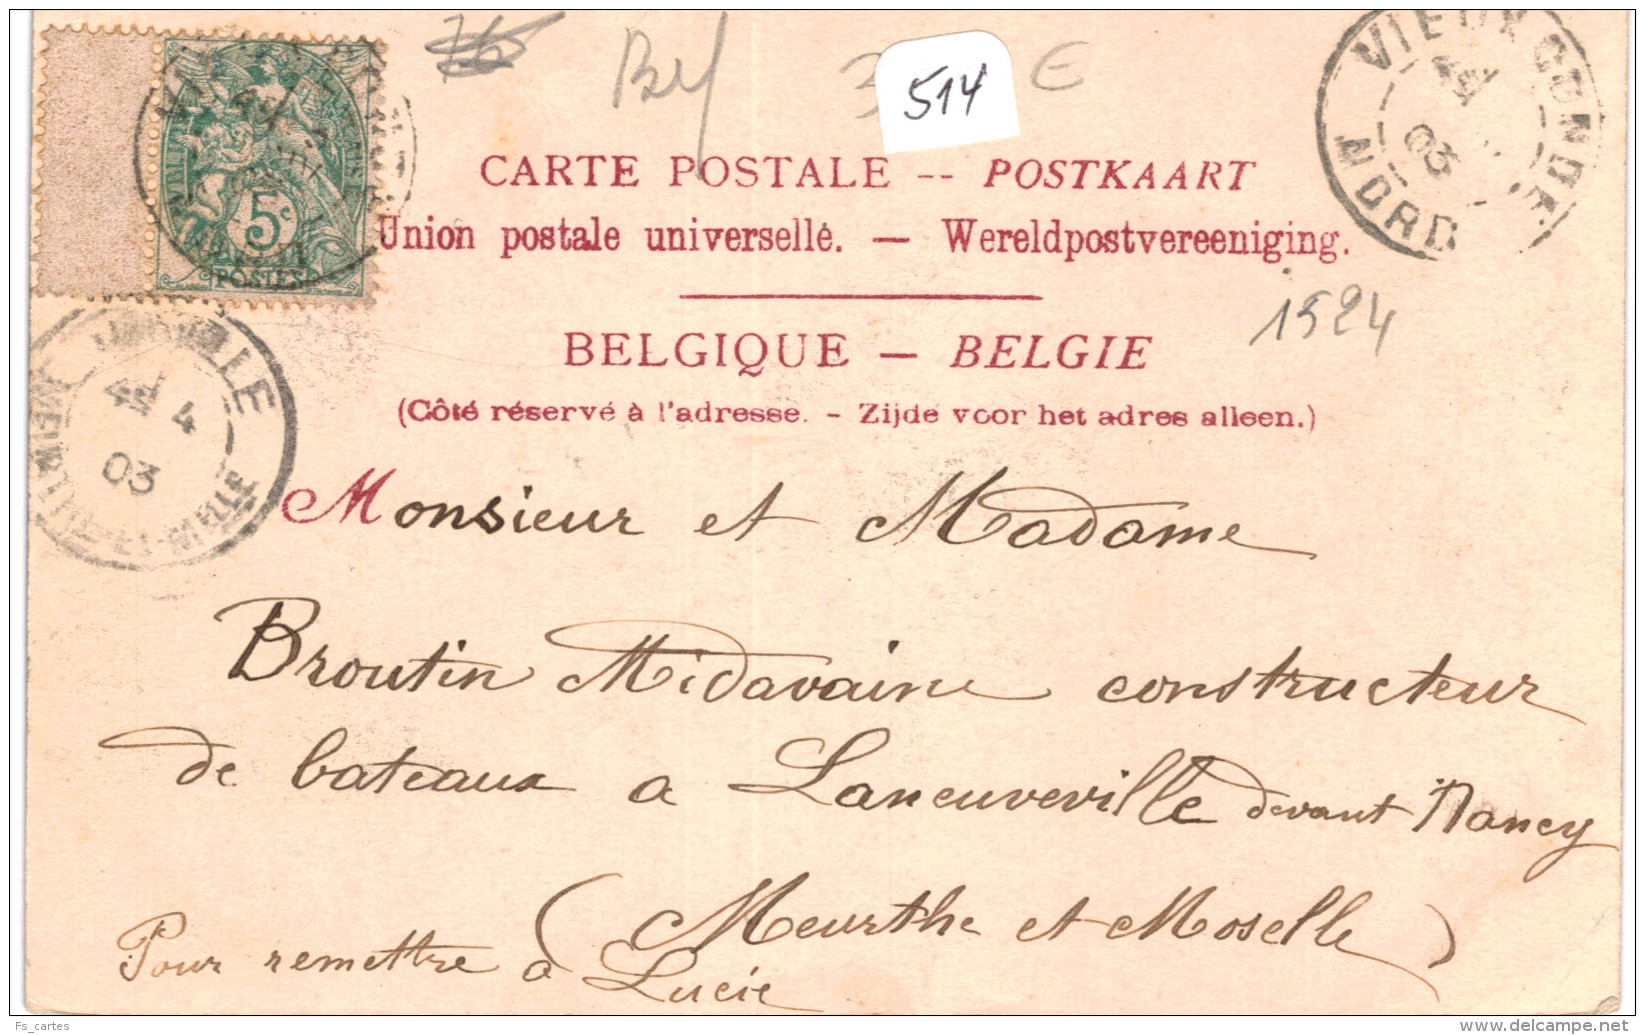 By
3
€
514
VIEUX CONDÉ
03
NORD
5c
POSTES
CARTE POSTALE -- POSTKAART
Union postale universelle. — Wereldpostvereeniging.
1524
BELGIQUE — BELGIE
(Côté réservé à l'adresse. - Zijde voor het adres alleen.)
4
03
MEURTHE-ET-MOSELLE
Monsieur et Madame
Broutin Midavaine constructeur
de bateaux a Laneuveville devant Nancy
(Meurthe et Moselle)
Pour remettre a Lucie
Fs_cartes
delcampe.net